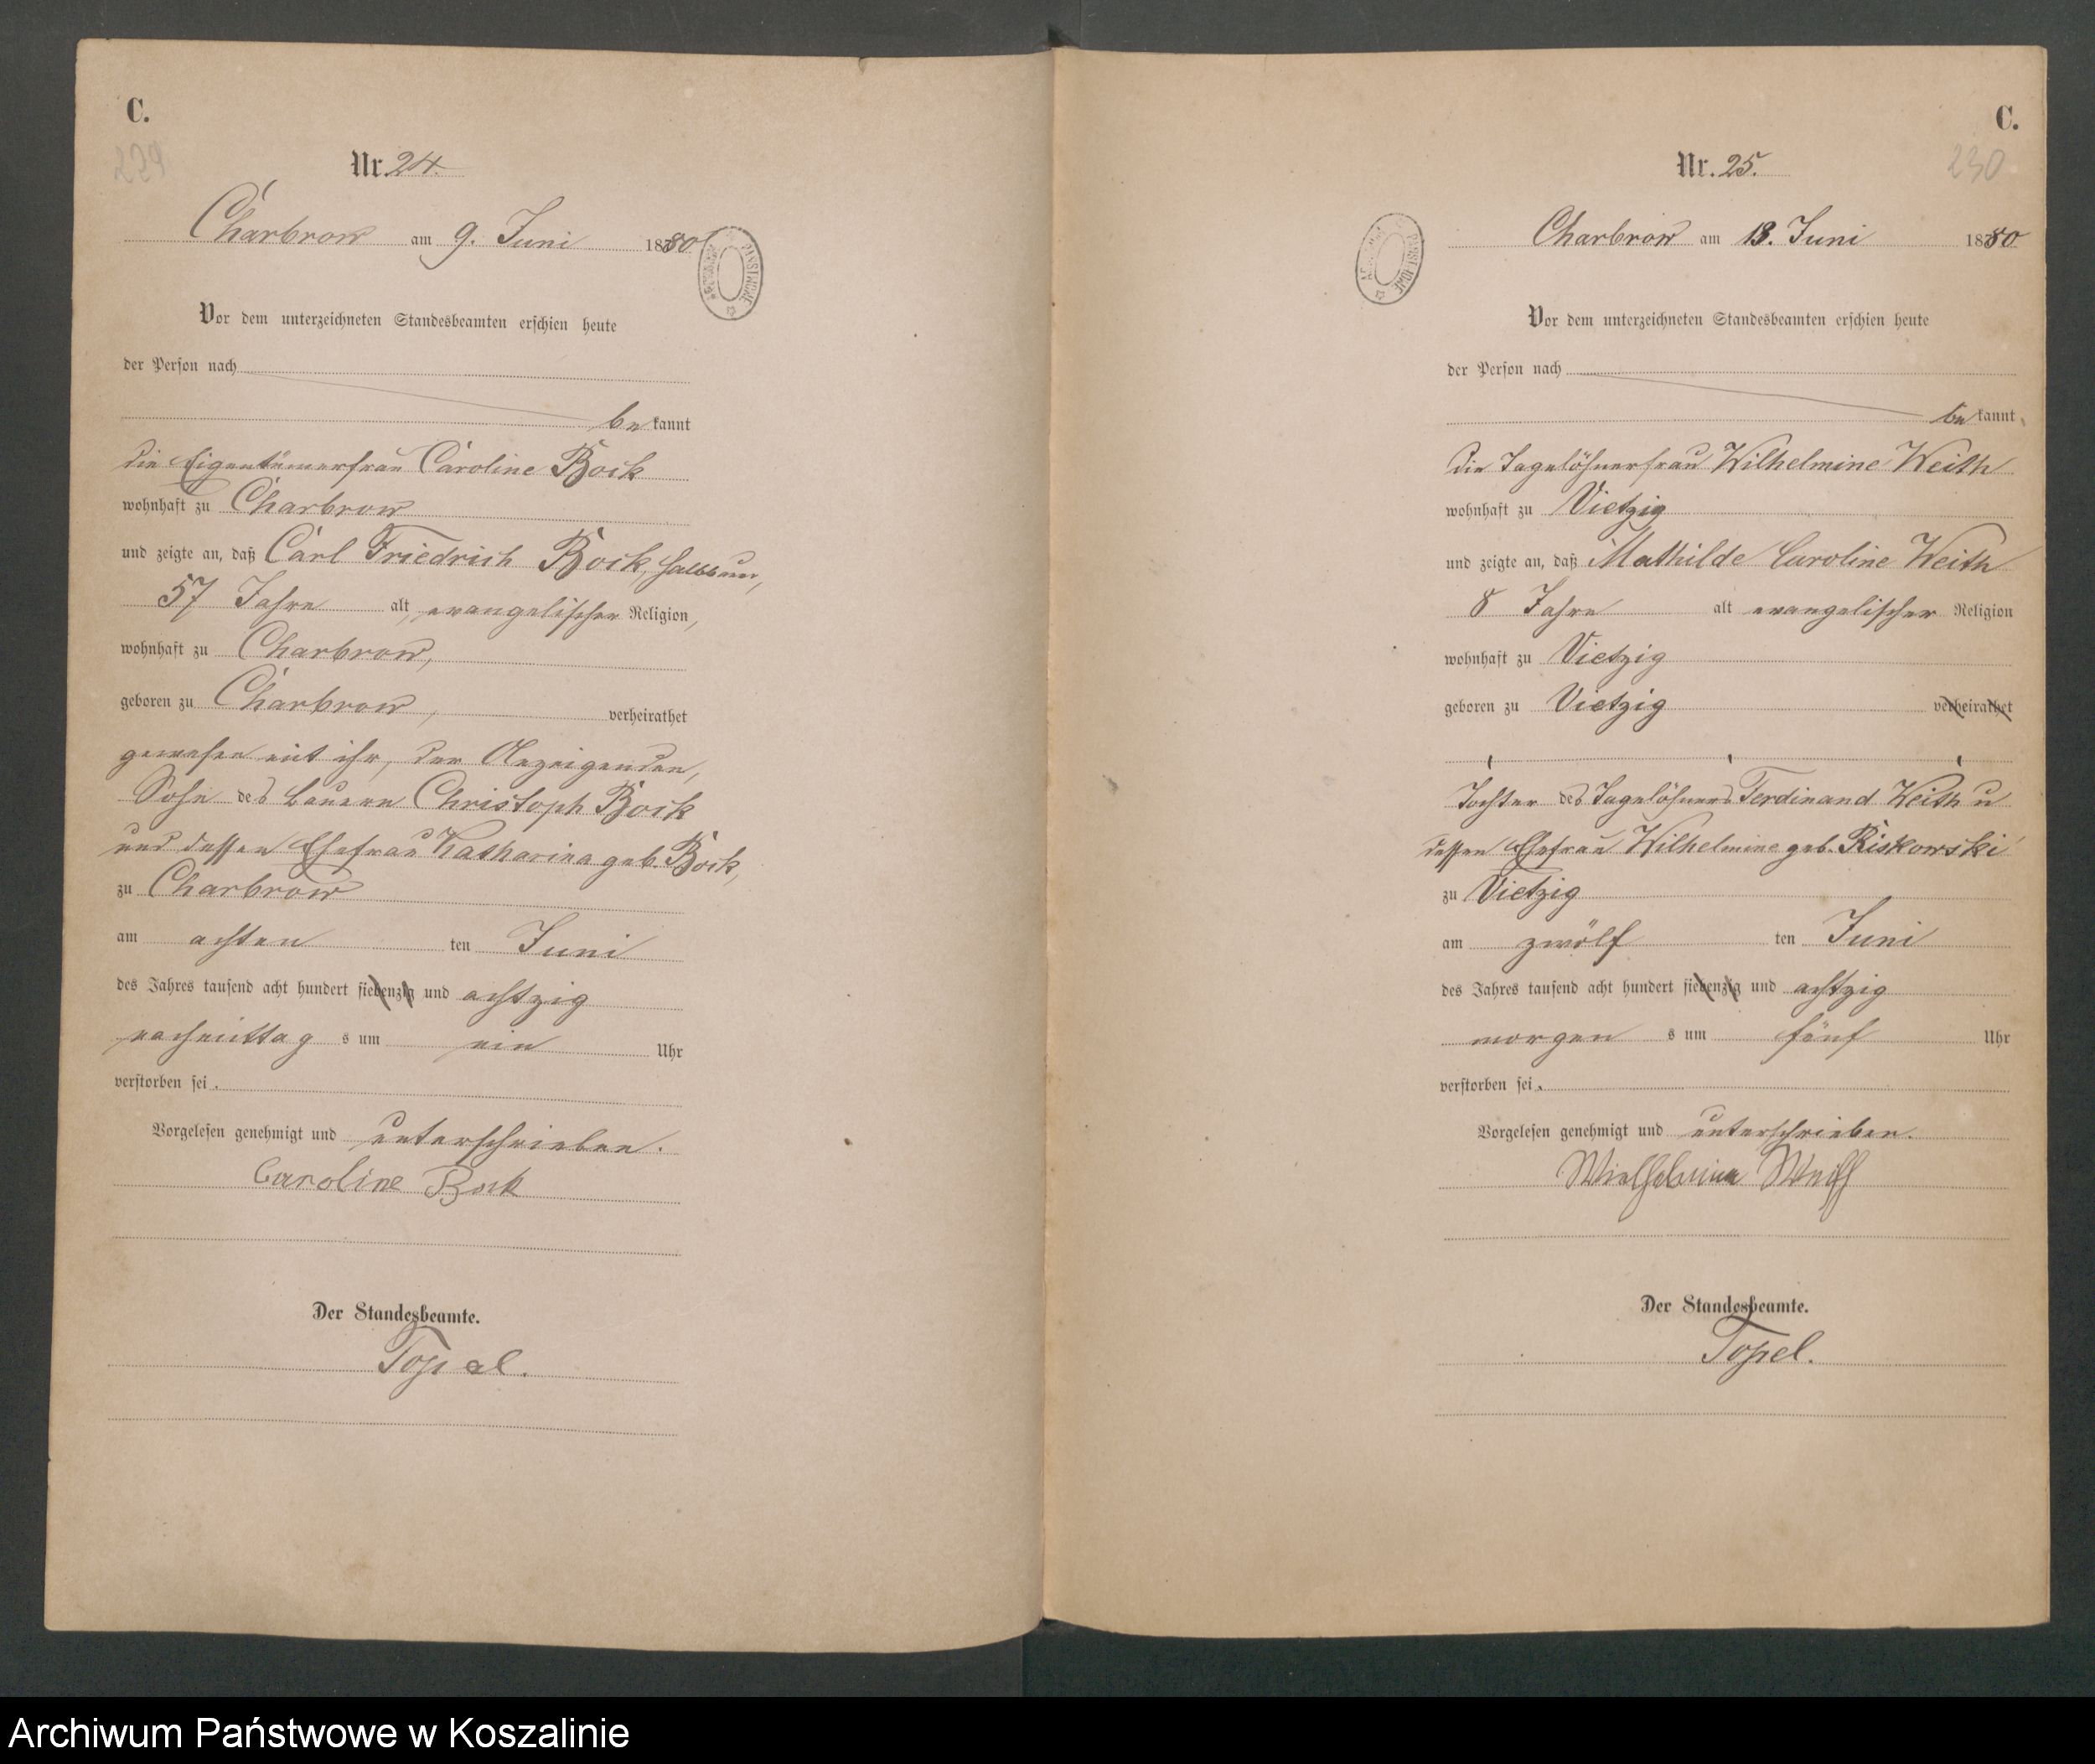 C.
229
Nr. 24.
Charbrow am 9. Juni 1880
Vor dem unterzeichneten Standesbeamten erschien heute
der Person nach
bekannt
die Eigentümerfrau Caroline Bock
wohnhaft zu Charbrow
und zeigte an, daß Carl Friedrich Bock,
57 Jahre alt, evangelischer Religion,
wohnhaft zu Charbrow,
geboren zu Charbrow, verheirathet
gewesen mit ihr, der Anzeigenden,
Sohn des Bauern Christoph Bock
und dessen Ehefrau Katharina geb. Bock,
zu Charbrow
am achten ten Juni
des Jahres tausend acht hundert siebenzig und achtzig
nachmittags um ein Uhr
verstorben sei.
Vorgelesen genehmigt und unterschrieben.
Caroline Bock
Der Standesbeamte.
Topel.
C.
230
Nr. 25.
Charbrow am 13. Juni 1880
Vor dem unterzeichneten Standesbeamten erschien heute
der Person nach
bekannt,
die Tagelöhnerfrau Wilhelmine Weith
wohnhaft zu Vietzig
und zeigte an, daß Mathilde Caroline Weith
8 Jahre alt evangelischer Religion
wohnhaft zu Vietzig
geboren zu Vietzig verheirathet
Tochter des Tagelöhners Ferdinand Weith u
dessen Ehefrau Wilhelmine geb. Riskowski
zu Vietzig
am zwölf ten Juni
des Jahres tausend acht hundert siebenzig und achtzig
morgens um fünf Uhr
verstorben sei.
Vorgelesen genehmigt und unterschrieben.
Der Standesbeamte.
Topel.
Archiwum Państwowe w Koszalinie